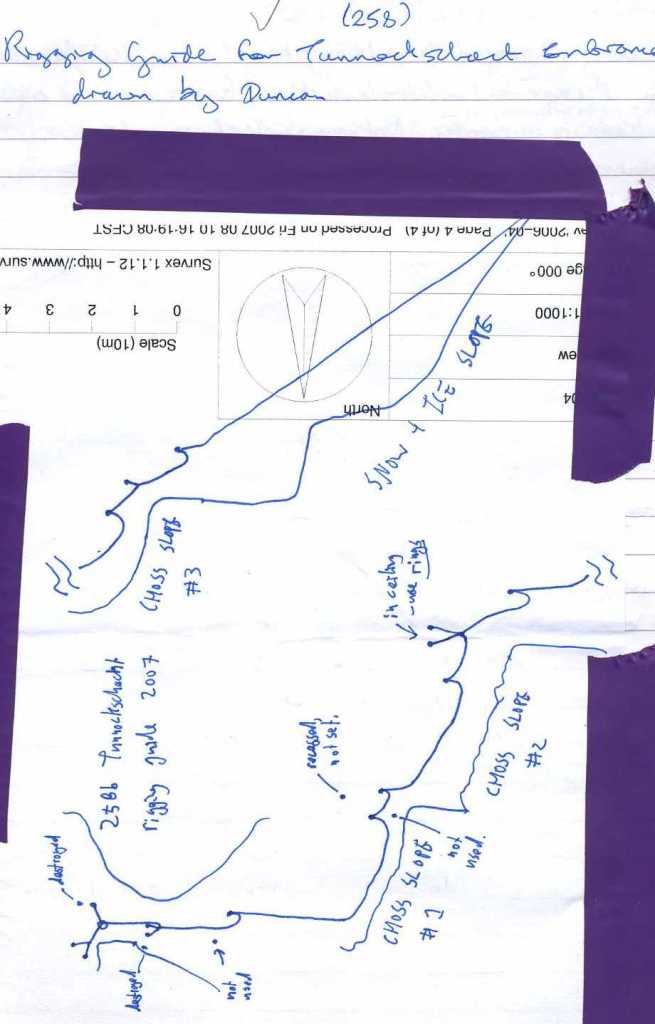 (258)
Rigging Guide for Tunnockschacht Entrance
drawn by Duncan
'2006-04' Page 4 (of 4) Processed on Fri 2007 08 10 16:19:08 CEST
Survex 1.1.12 – http://www.surv
000°
1:1000
ew
04
North
0 1 2 3 4
Scale (10m)
SNOW + ICE SLOPE
CHOSS SLOPE
#3
in ceiling
- use rings
258b Tunnockschacht
rigging guide 2007
recessed,
not set.
CHOSS SLOPE
#2
not
used.
CHOSS SLOPE
#1
destroyed
destroyed
not
used